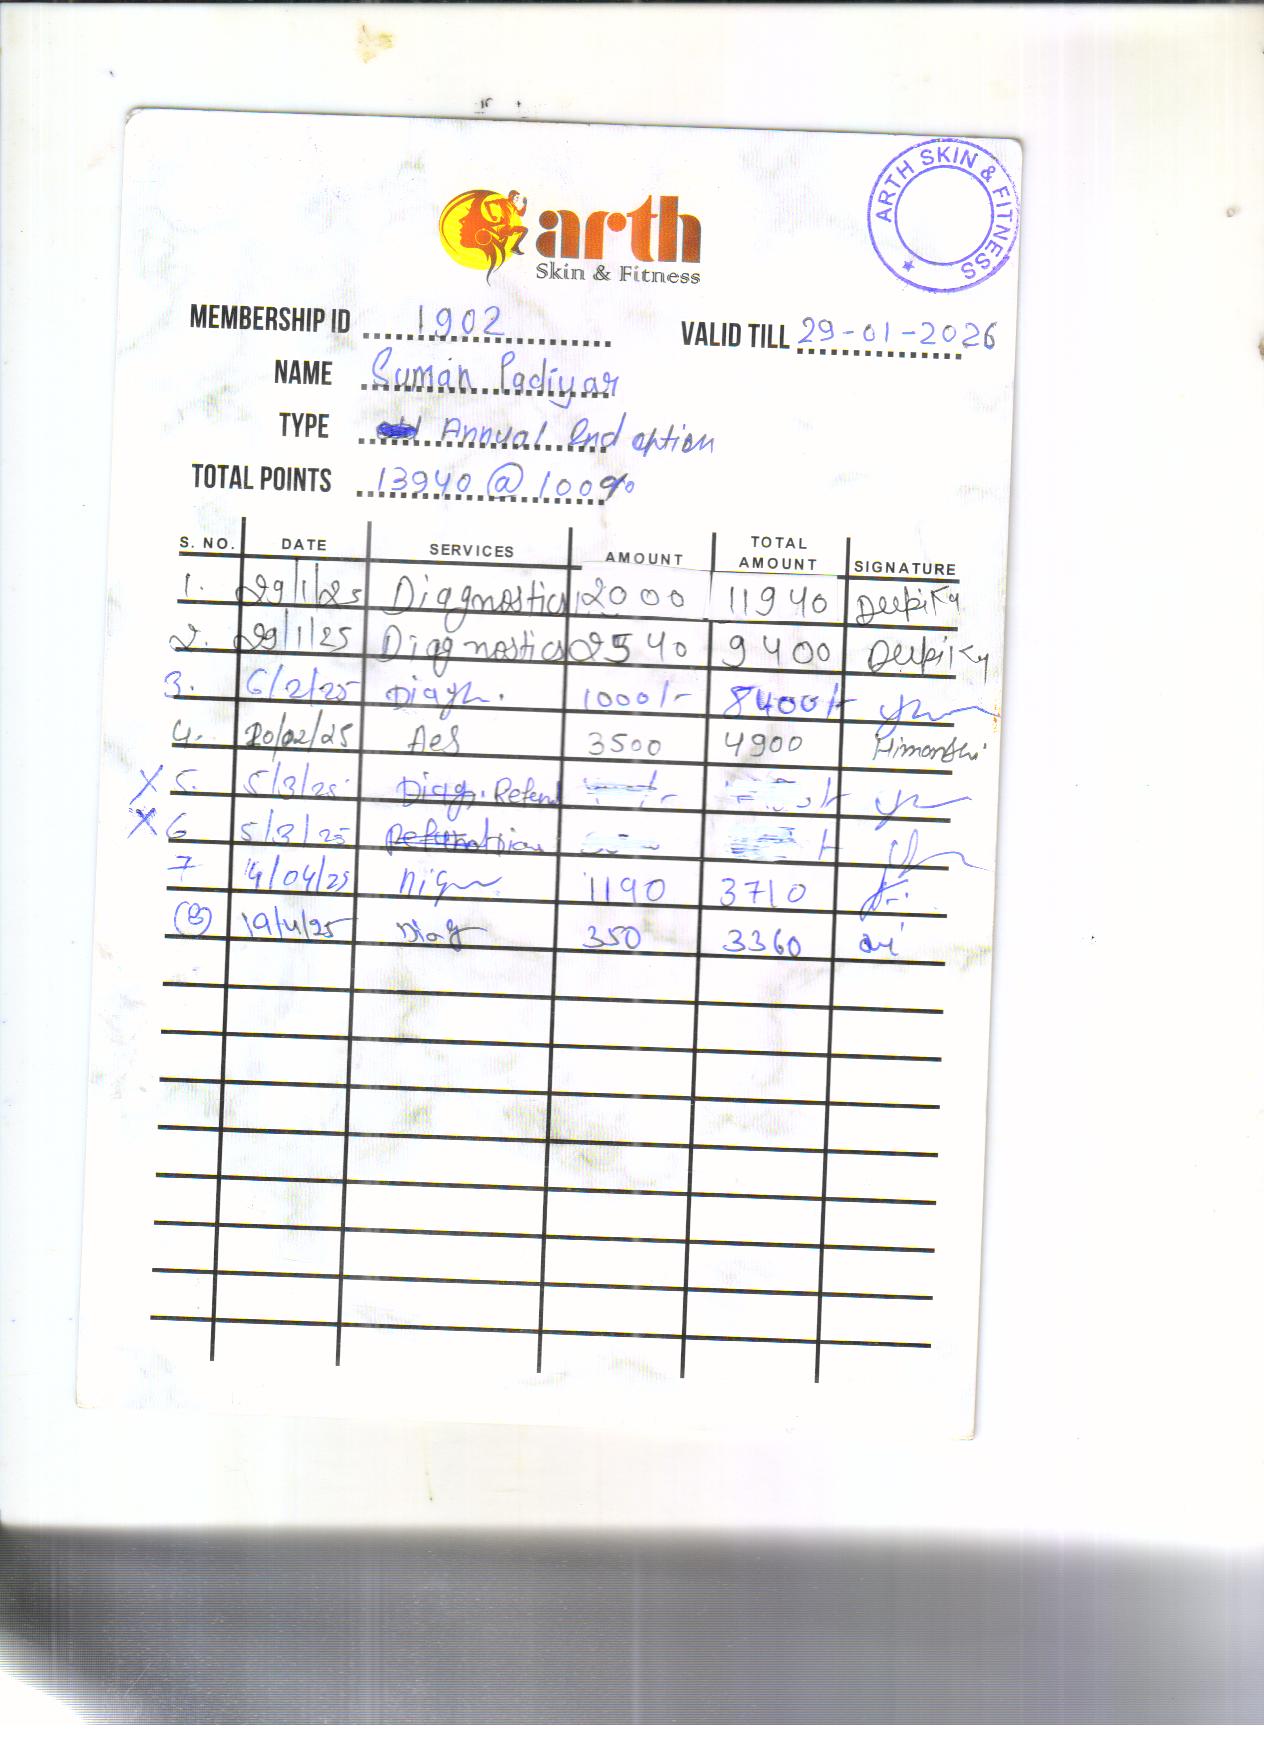 ARTH SKIN & FITNESS
arth
Skin & Fitness
MEMBERSHIP ID 1902 VALID TILL 29-01-2026
NAME Suman Padiyar
TYPE Annual 2nd option
TOTAL POINTS 13940 @ 100%
S. NO. DATE SERVICES AMOUNT TOTAL AMOUNT SIGNATURE
1. 29/1/25 Diagnostics 2000 11940 Deepika
2. 29/1/25 Diagnostics 2540 9400 Deepika
3. 6/2/25 1000/- 8400/-
4. 20/02/25 Aes 3500 4900 Himanshi
X 5. 5/3/25 Diag. Refend
X 6 5/3/25
7 14/04/25 1190 3710
8 19/4/25 Diag 350 3360